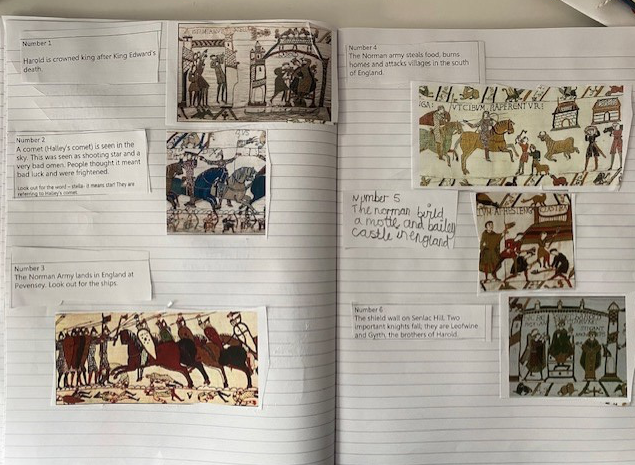 Number 1
Harold is crowned king after King Edward's
death.
Number 2
A comet (Halley's comet) is seen in the
sky. This was seen as shooting star and a
very bad omen. People thought it meant
bad luck and were frightened.
Look out for the word – stella - it means star! They are
referring to Halley's comet.
Number 3
The Norman Army lands in England at
Pevensey. Look out for the ships.
Number 4
The Norman army steals food, burns
homes and attacks villages in the south
of England.
VT CIBVM RAPERENTVR:
Number 5
The norman build
a motte and bailey
castle in england
Number 6
The shield wall on Senlac Hill. Two
important knights fall; they are Leofwine
and Gyrth, the brothers of Harold.